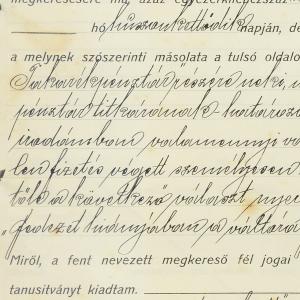 megkeresésére ma, azaz egyezerkilencszáz
hó huszonkettődik napján, de
a melynek szószerinti másolata a tulsó oldalo
Takarékpénztár részére neki, 
pénztár titkárának határoza
irodámban valamennyi va
len fizetés végett személyesen
tőle a következő választ nyer
„fedezet hiányjában a váltóra
Miről, a fent nevezett megkereső fél jogai
tanusitványt kiadtam.